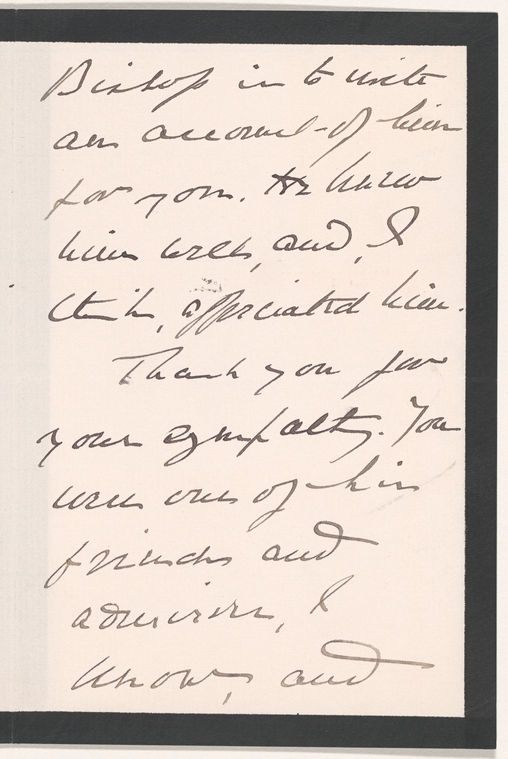 Bishop is to write
an account of him
for you. He knew
him well, and, I
think, appreciated him.
Thank you for
your sympathy. You
were one of his
friends and
admirers, I
know, and